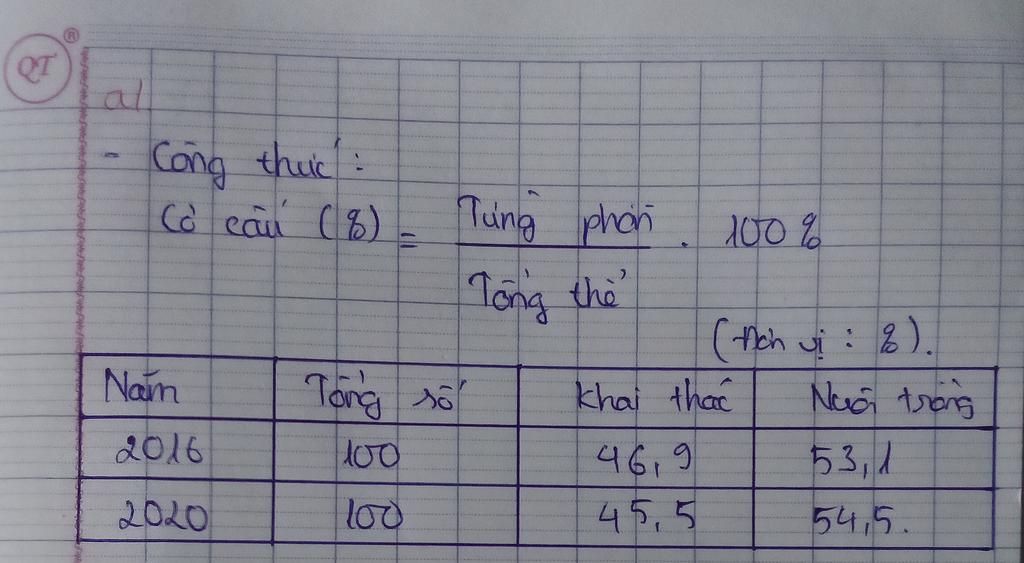 QT ®
a/
- Công thức :
Cơ cấu (%) = Từng phần / Tổng thể . 100 %
(Đơn vị : %).
Năm Tổng số Khai thác Nuôi trồng
2016 100 46,9 53,1
2020 100 45,5 54,5.